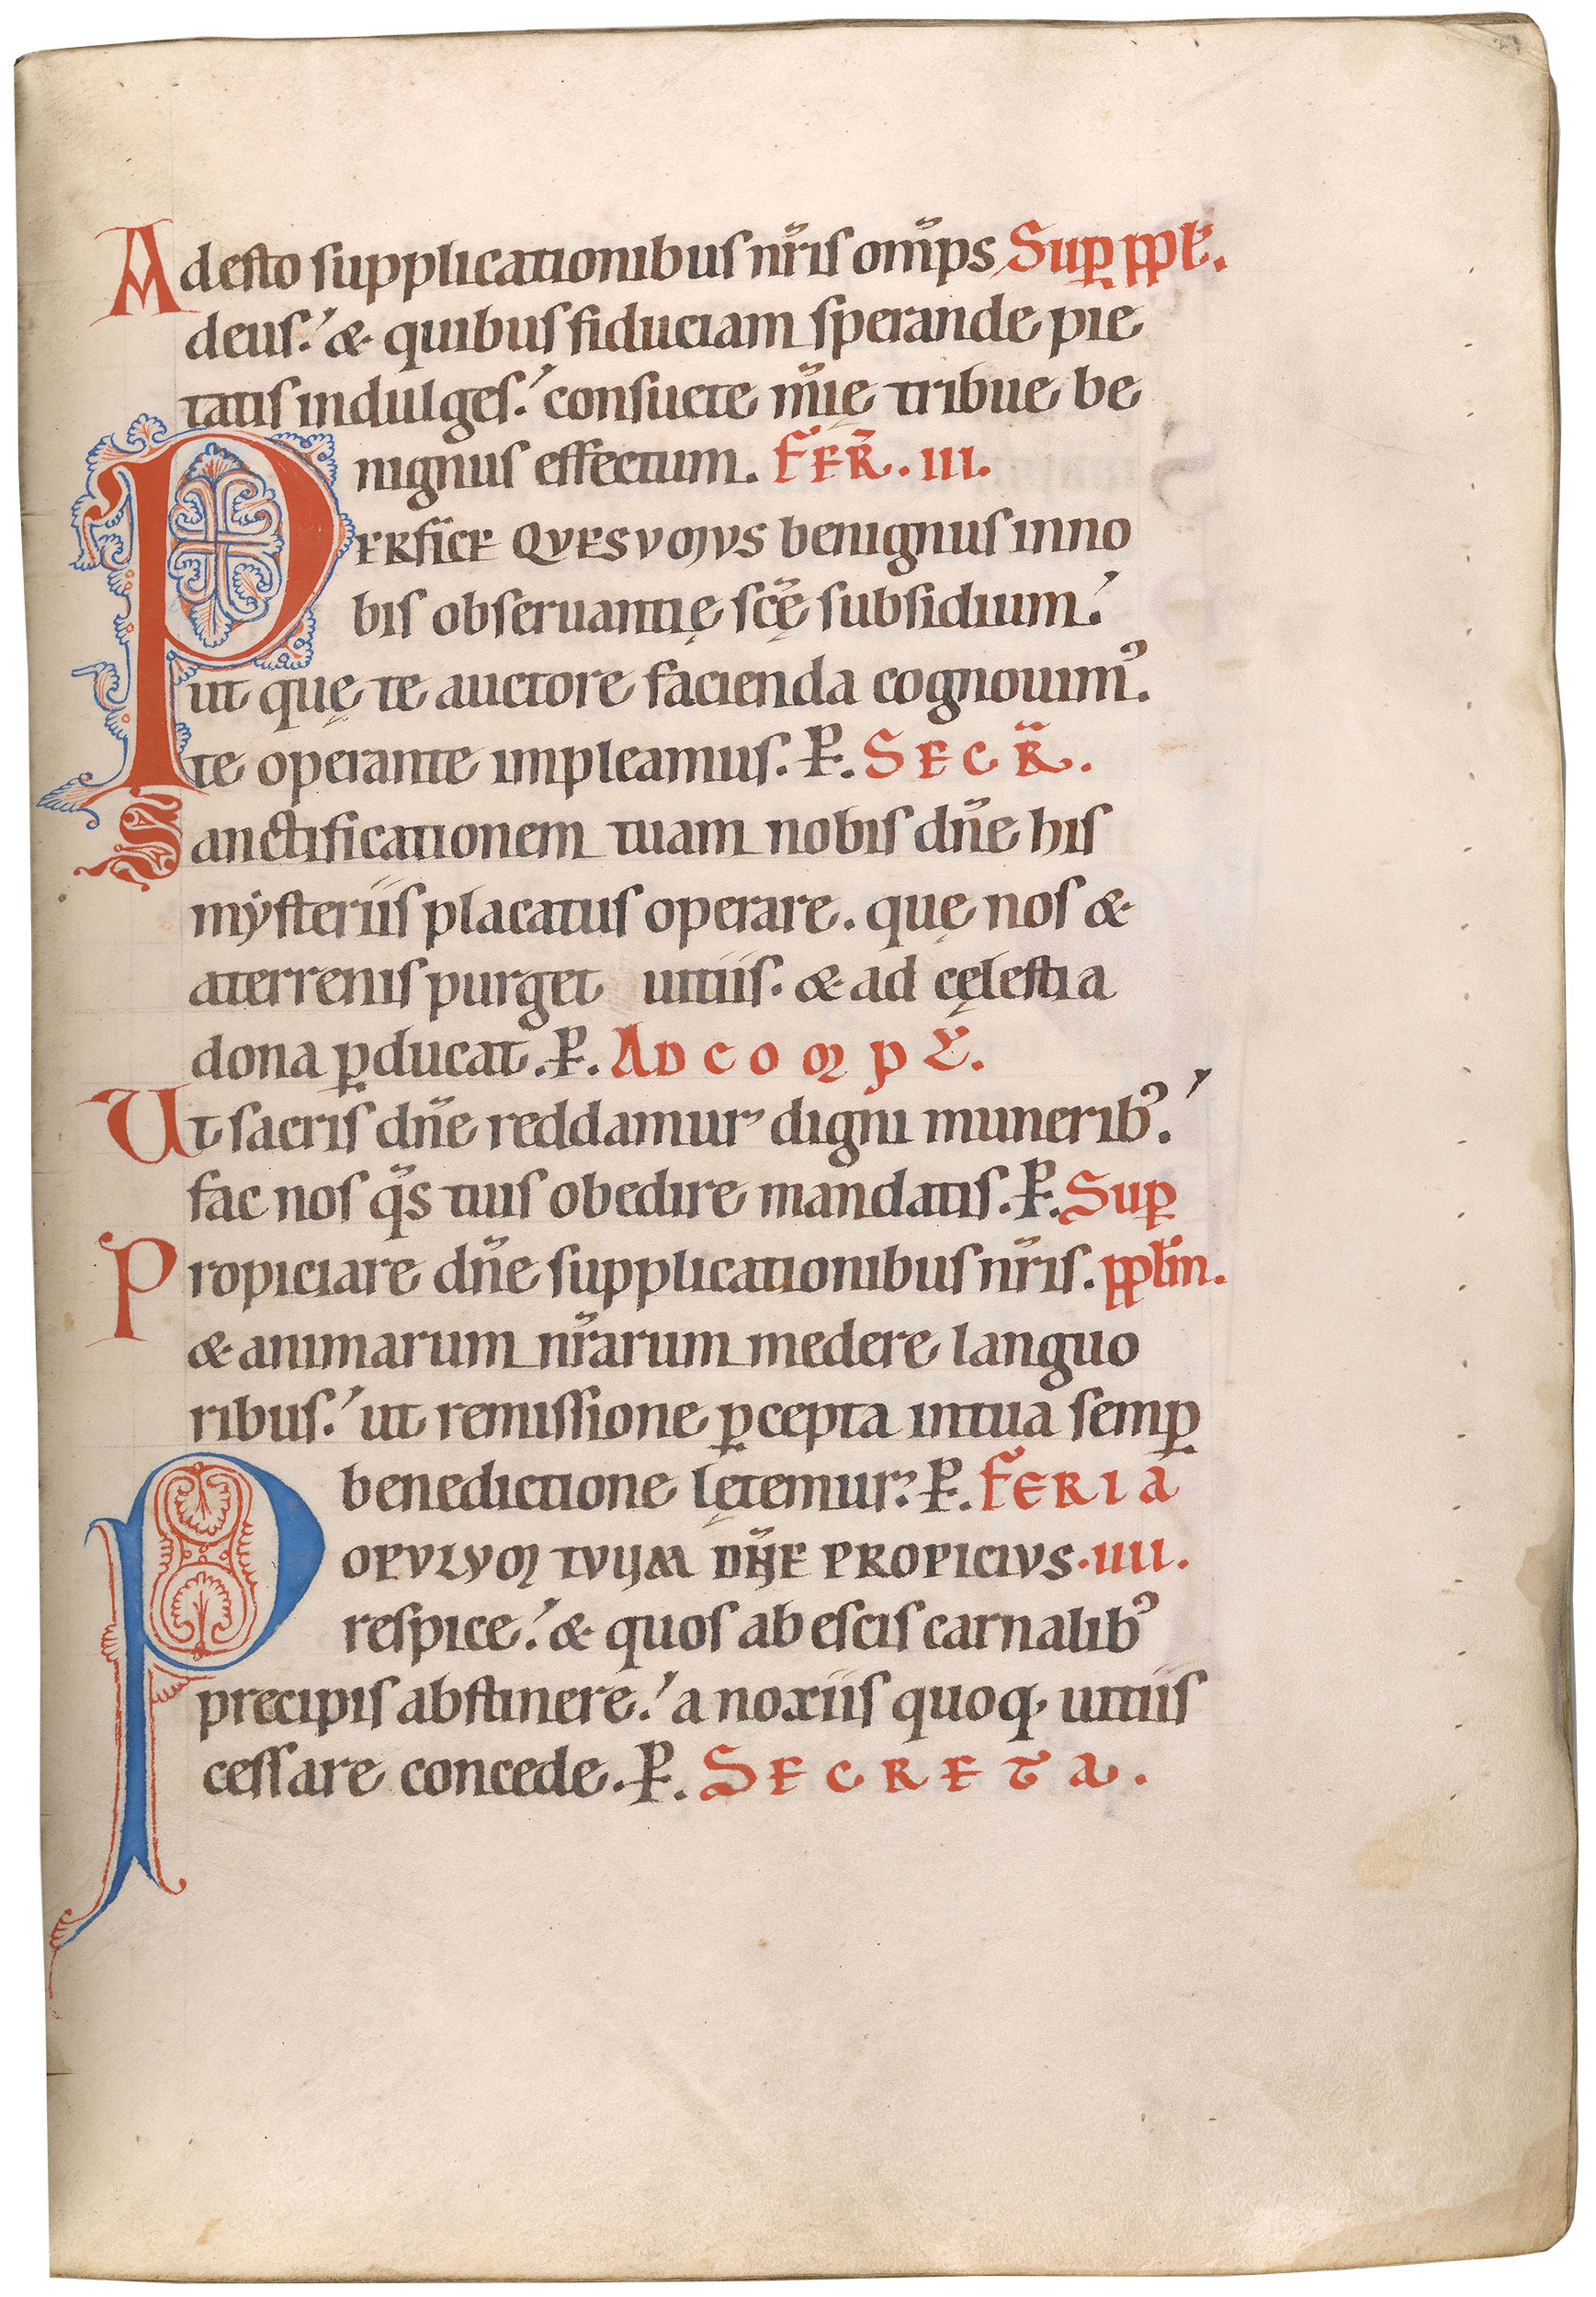 Adesto supplicationibus nr̃is om̃ps Suꝑ pp̃l.
deus.' & quibus fiduciam sperande pie
tatis indulges.' consuete m̃ię tribue be
nignus effectum. FER̃. III.
PERFICE QVESVMVS benignus inno
bis obseruantię sc̃ę subsidium.'
ut quę te auctore facienda cognouimꝰ.
te operante impleamus. P̶. SECR̃.
Sanctificationem tuam nobis dñe his
mẏsteriis placatus operare. quę nos &
aterrenis purget uitiis. & ad cęlestia
dona ꝑducat. P̶. AD COMPL̃.
Ut sacris dñe reddamur digni muneribꝰ.'
fac nos q̃s tuis obedire mandatis. P̶. Suꝑ
Propiciare dñe supplicationibus nr̃is. pp̃lm.
& animarum nr̃arum medere languo
ribus.' ut remissione ꝑcepta intua semꝑ
benedictione lętemur. P̶. FERIA
POPVLVM TVVM DÑE PROPICIVS. IIII.
respice.' & quos ab escis carnalibꝰ
precipis abstinere.' a noxiis quoq. uitiis
cessare concede. P̶. SECRETA.